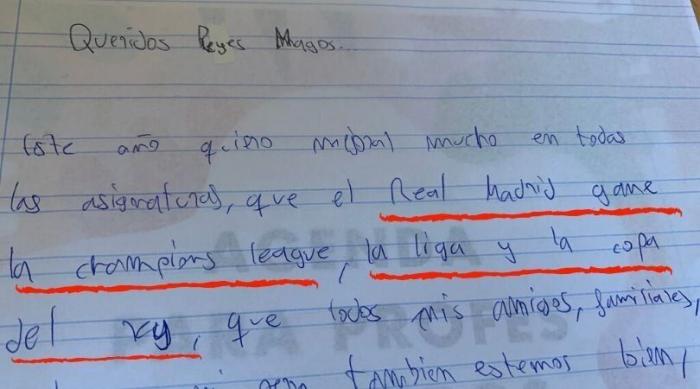 Queridos Reyes Magos...
Este año quiero mejorar mucho en todas
las asignaturas, que el Real Madrid gane
la champions league, la liga y la copa
del rey, que todos mis amigos, familiares,
tambien estemos bien,
AGENDA
PARA PROFES